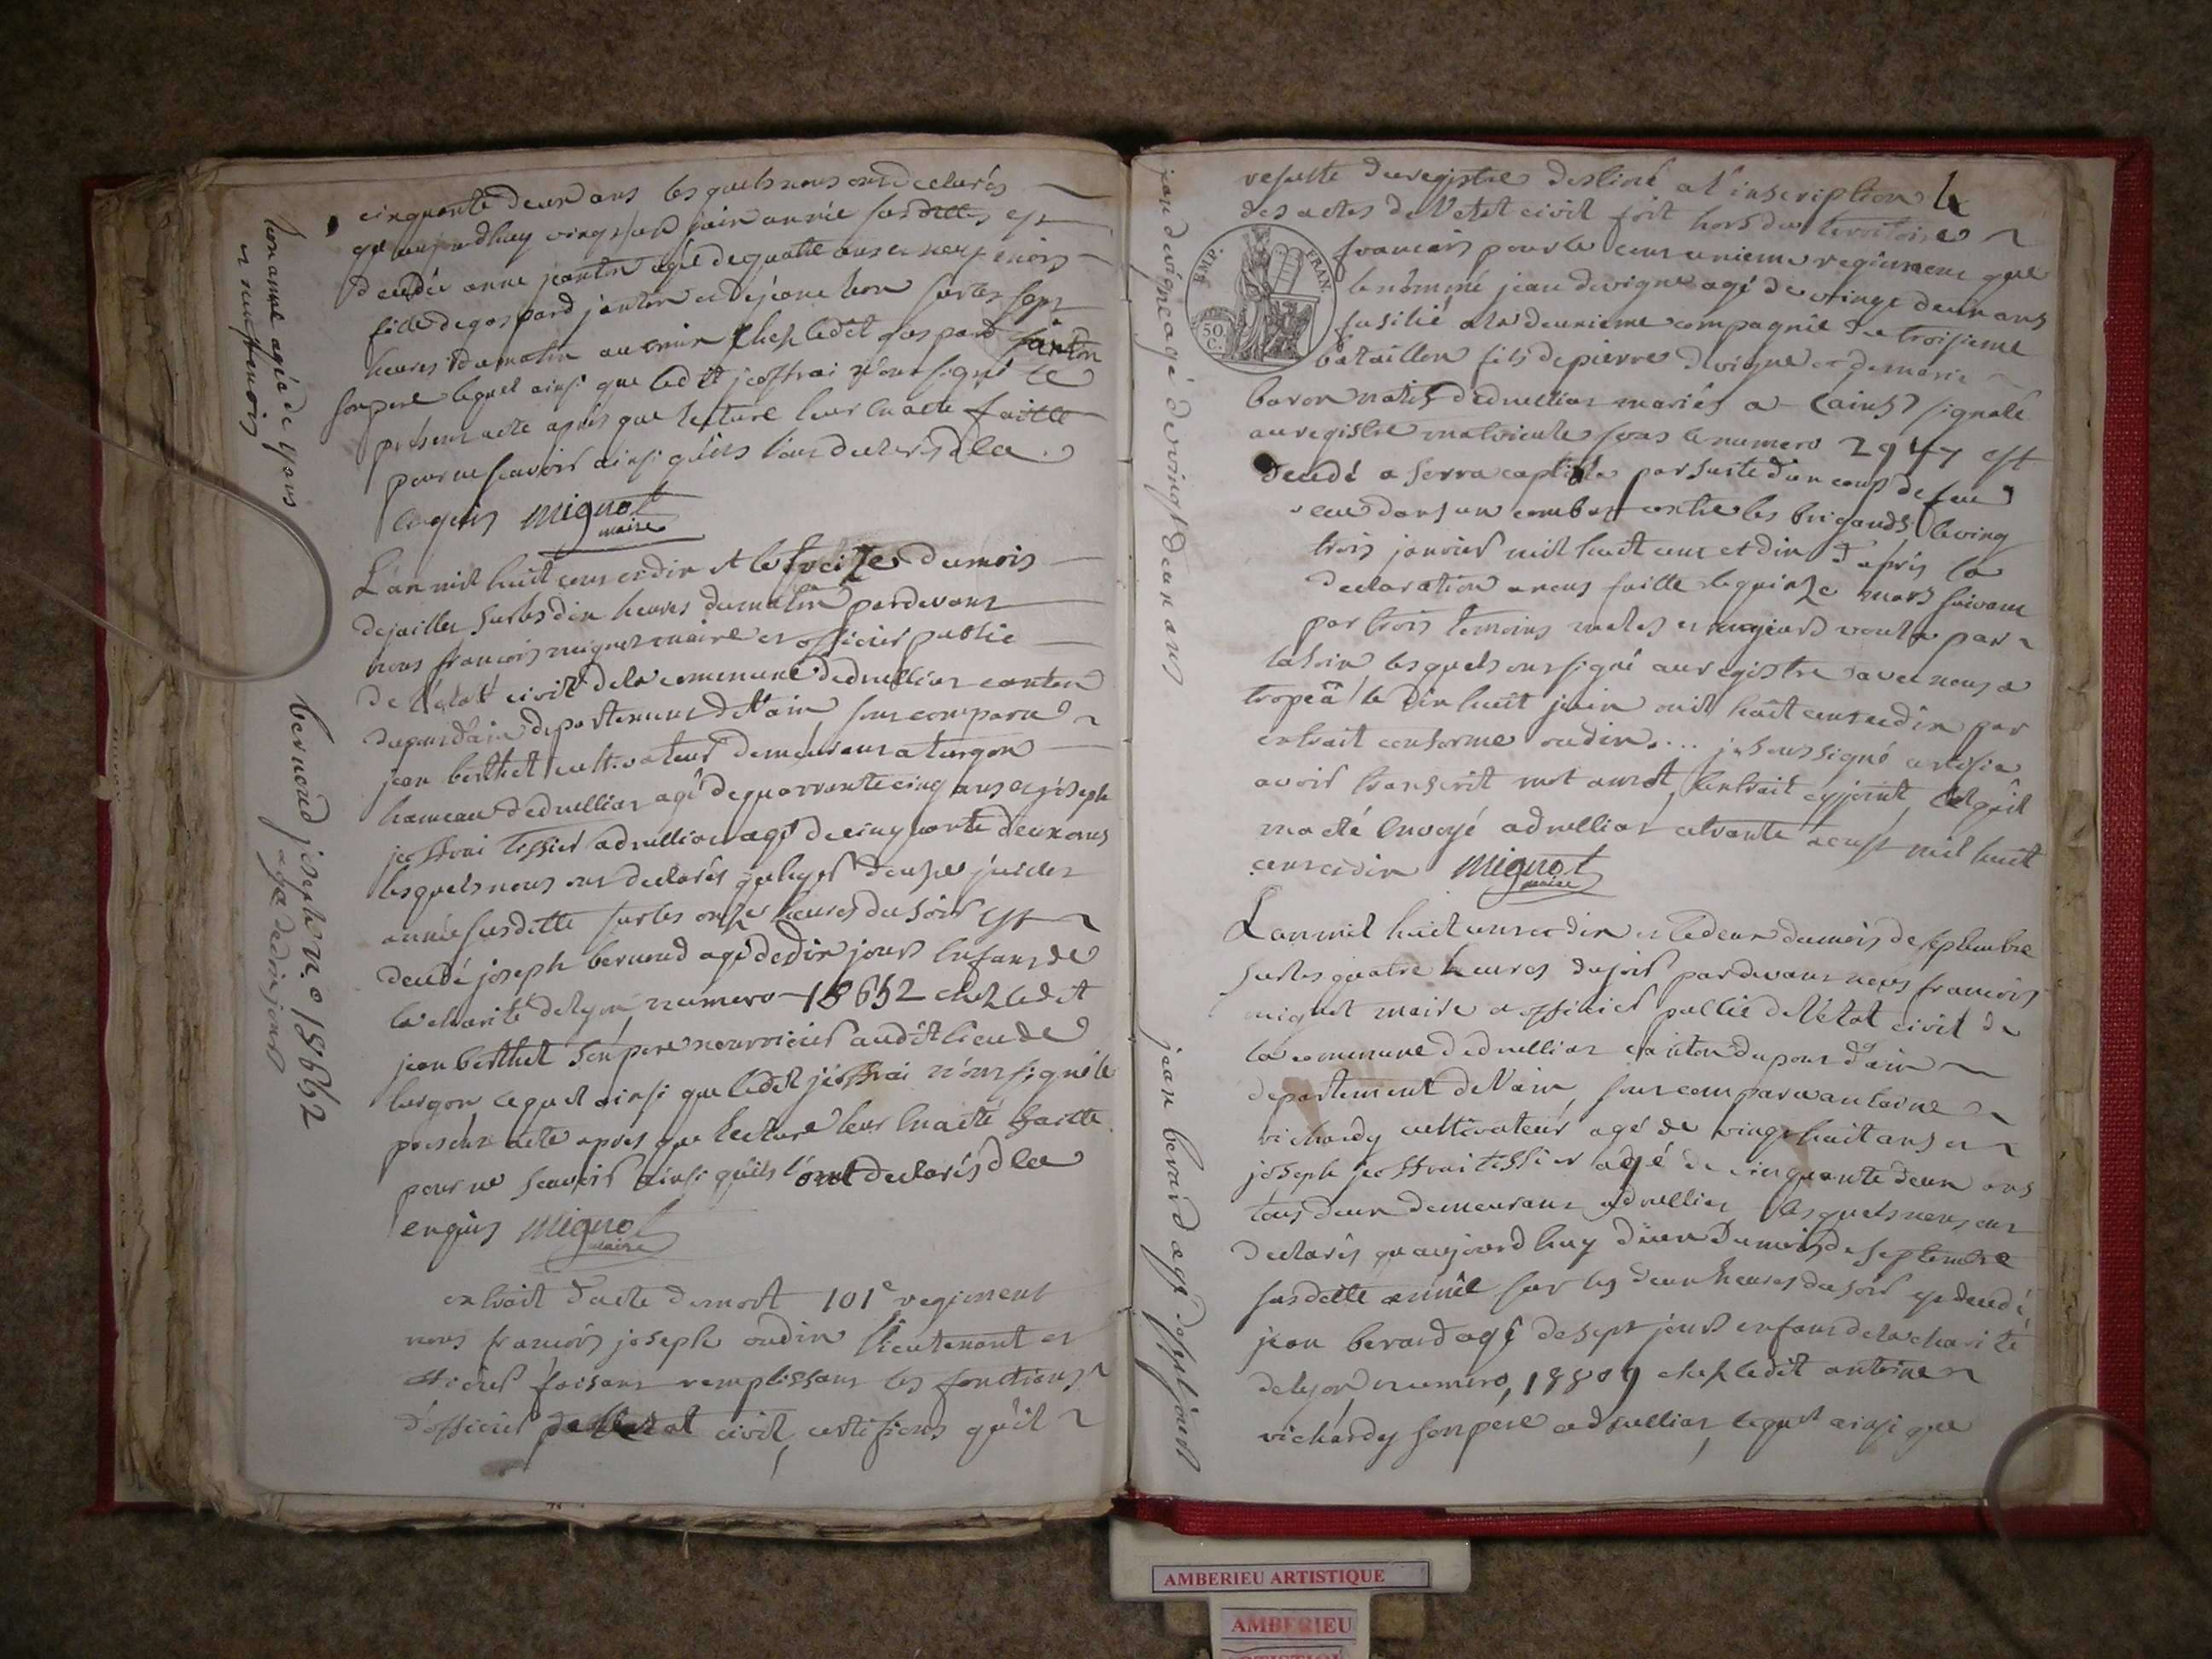 cinquante deux ans les quels nous ont declarés
qu aujourdhuy vingt juin année susditte est
decedée anne janton agée de quatre ans et neuf mois
fille de gaspard janton et de jeane leon sur les sept
heures du matin au chez ledit gaspard janton
son pere lequel ainsi que ledit jeoffrai n'ont signé le
présent acte après que lecture leur en a été faitte
pour ne scavoir ainsi qu'ils l'ont declarés de ce
enquis mignot
maire
L'an mil huit cens et dix et le treize du mois
de juillet sur les dix heures du matin pardevant
nous francois mignot maire et officier public
de l'etat civil de la commune de druillias canton
du pont d'ain departement de l'ain sont comparu
jean berthet cultivateur demeurant a turgon
hameau de druillias agé de quarrante cinq ans et joseph
jeoffrai tessier a druillias agé de cinquante deux ans
lesquels nous ont declarés qu hyer douze juillet
année susditte sur les onze heures du soir est
decedé joseph bernoud agé de dix jours enfant de
la charité de lyon numero 18652 chez ledit
jean berthet son pere nourricier audit lieu de
turgon lequel ainsi que ledit jeoffrai n'ont signé le
présent acte apres que lecture leur en a été faitte
pour ne scavoir ainsi qu'ils l'ont declarés de ce
enquis mignot
maire
extrait d'acte de mort 101e regiment
nous francois joseph oudin lieutenant et
officier faisant remplissant les fonctions
d'officier de l'etat civil, certifions qu'il
leon anne agée de 4 ans
et neuf mois
bernoud joseph n.o 18652
agé de dix jours
resulte du registre destiné a l'inscription
des actes de l'etat civil fait hors du territoire
francais pour le cent unieme regiment que
le nommé jean devigne agé de vingt deux ans
fusilié a la deuxieme compagnie du troisieme
bataillon fils de pierre devigne et de marie
baron natif de druillias mariés a l'ains signalé
au registre matricule sous le numero 2947 est
decedé a serra par suite d'un coup de feu
reçu dans un combat contre les brigands le vingt
trois janvier mil huit cent et dix d'après la
declaration a nous faitte le quinze mars suivant
par trois temoins males et majeurs voulu par
la loix lesquels ont signé au registre avec nous a
tropea le dix huit juin mil huit cent et dix par
extrait conforme oudin.... je soussigné certifie
avoir transcrit mot a mot l'extrait cyjoint, lequel
m'a été envoyé a druillias ce trante aoust mil huit
cent et dix mignot
maire
L'an mil huit cent et dix et le deux du mois de septembre
sur les quatre heures du soir pardevant nous francois
mignot maire et officier public de l'etat civil de
la commune de druillias canton du pont d'ain
departement de l'ain, sont comparu antoine
richardy cultivateur agé de vingt huit ans et
joseph jeoffrai tissier agé de cinquante deux ans
tous deux demeurant a druillias lesquels nous ont
declarés qu aujourdhuy deux du mois de septembre
susditte année sur les deux heures du soir est decedé
jean berard agé de sept jours enfant de la charité
de lyon numero, 18809 chez ledit antoine
richardy son père a druillias lequel ainsi que
jean devigne agé de vingt deux ans
jean berard agé de sept jours
EMP. FRAN.
50 C.
AMBERIEU ARTISTIQUE
AMBERIEU
ARTISTIQUE